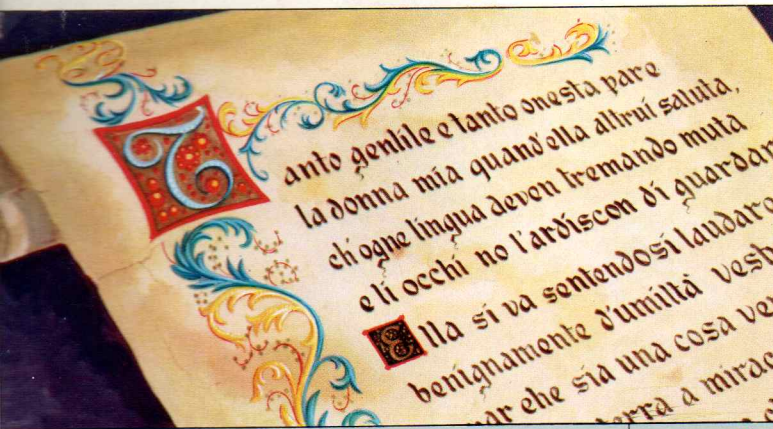 Tanto gentile e tanto onesta pare
la donna mia quand'ella altrui saluta,
ch'ogne lingua deven tremando muta
e li occhi no l'ardiscon di guardar
Ella si va sentendosi laudare
benignamente d'umiltà vest
ar che sia una cosa ve
erra a mirac